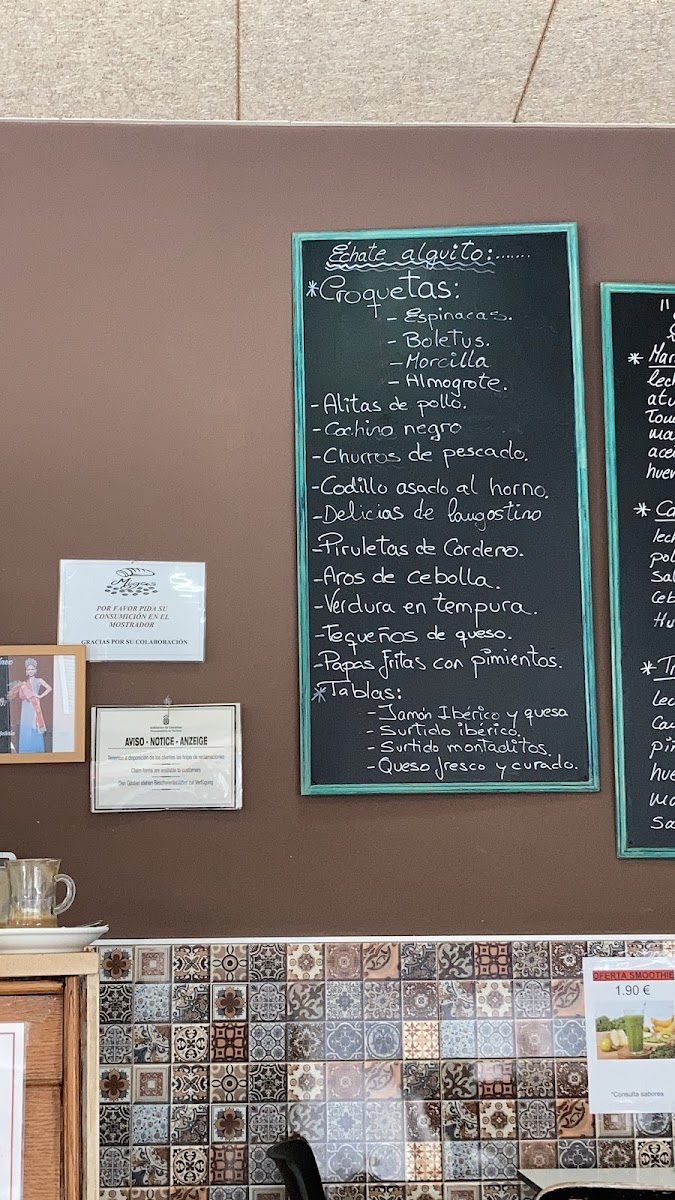 Échate alguito:.......
*Croquetas:
- Espinacas.
- Boletus.
- Morcilla
- Almogrote.
- Alitas de pollo.
- Cochino negro
- Churros de pescado.
- Codillo asado al horno.
- Delicias de langostino
- Piruletas de Cordero.
- Aros de cebolla.
- Verdura en tempura.
- Tequeños de queso.
- Papas fritas con pimientos.
*Tablas:
- Jamón Ibérico y queso
- Surtido ibérico.
- Surtido montaditos.
- Queso fresco y curado.
Migas
POR FAVOR PIDA SU
CONSUMICIÓN EN EL
MOSTRADOR
GRACIAS POR SU COLABORACIÓN
AVISO - NOTICE - ANZEIGE
Tenemos a disposición de los clientes las hojas de reclamaciones
Claim forms are available to customers
OFERTA SMOOTHIE
1.90 €
*Consulta sabores